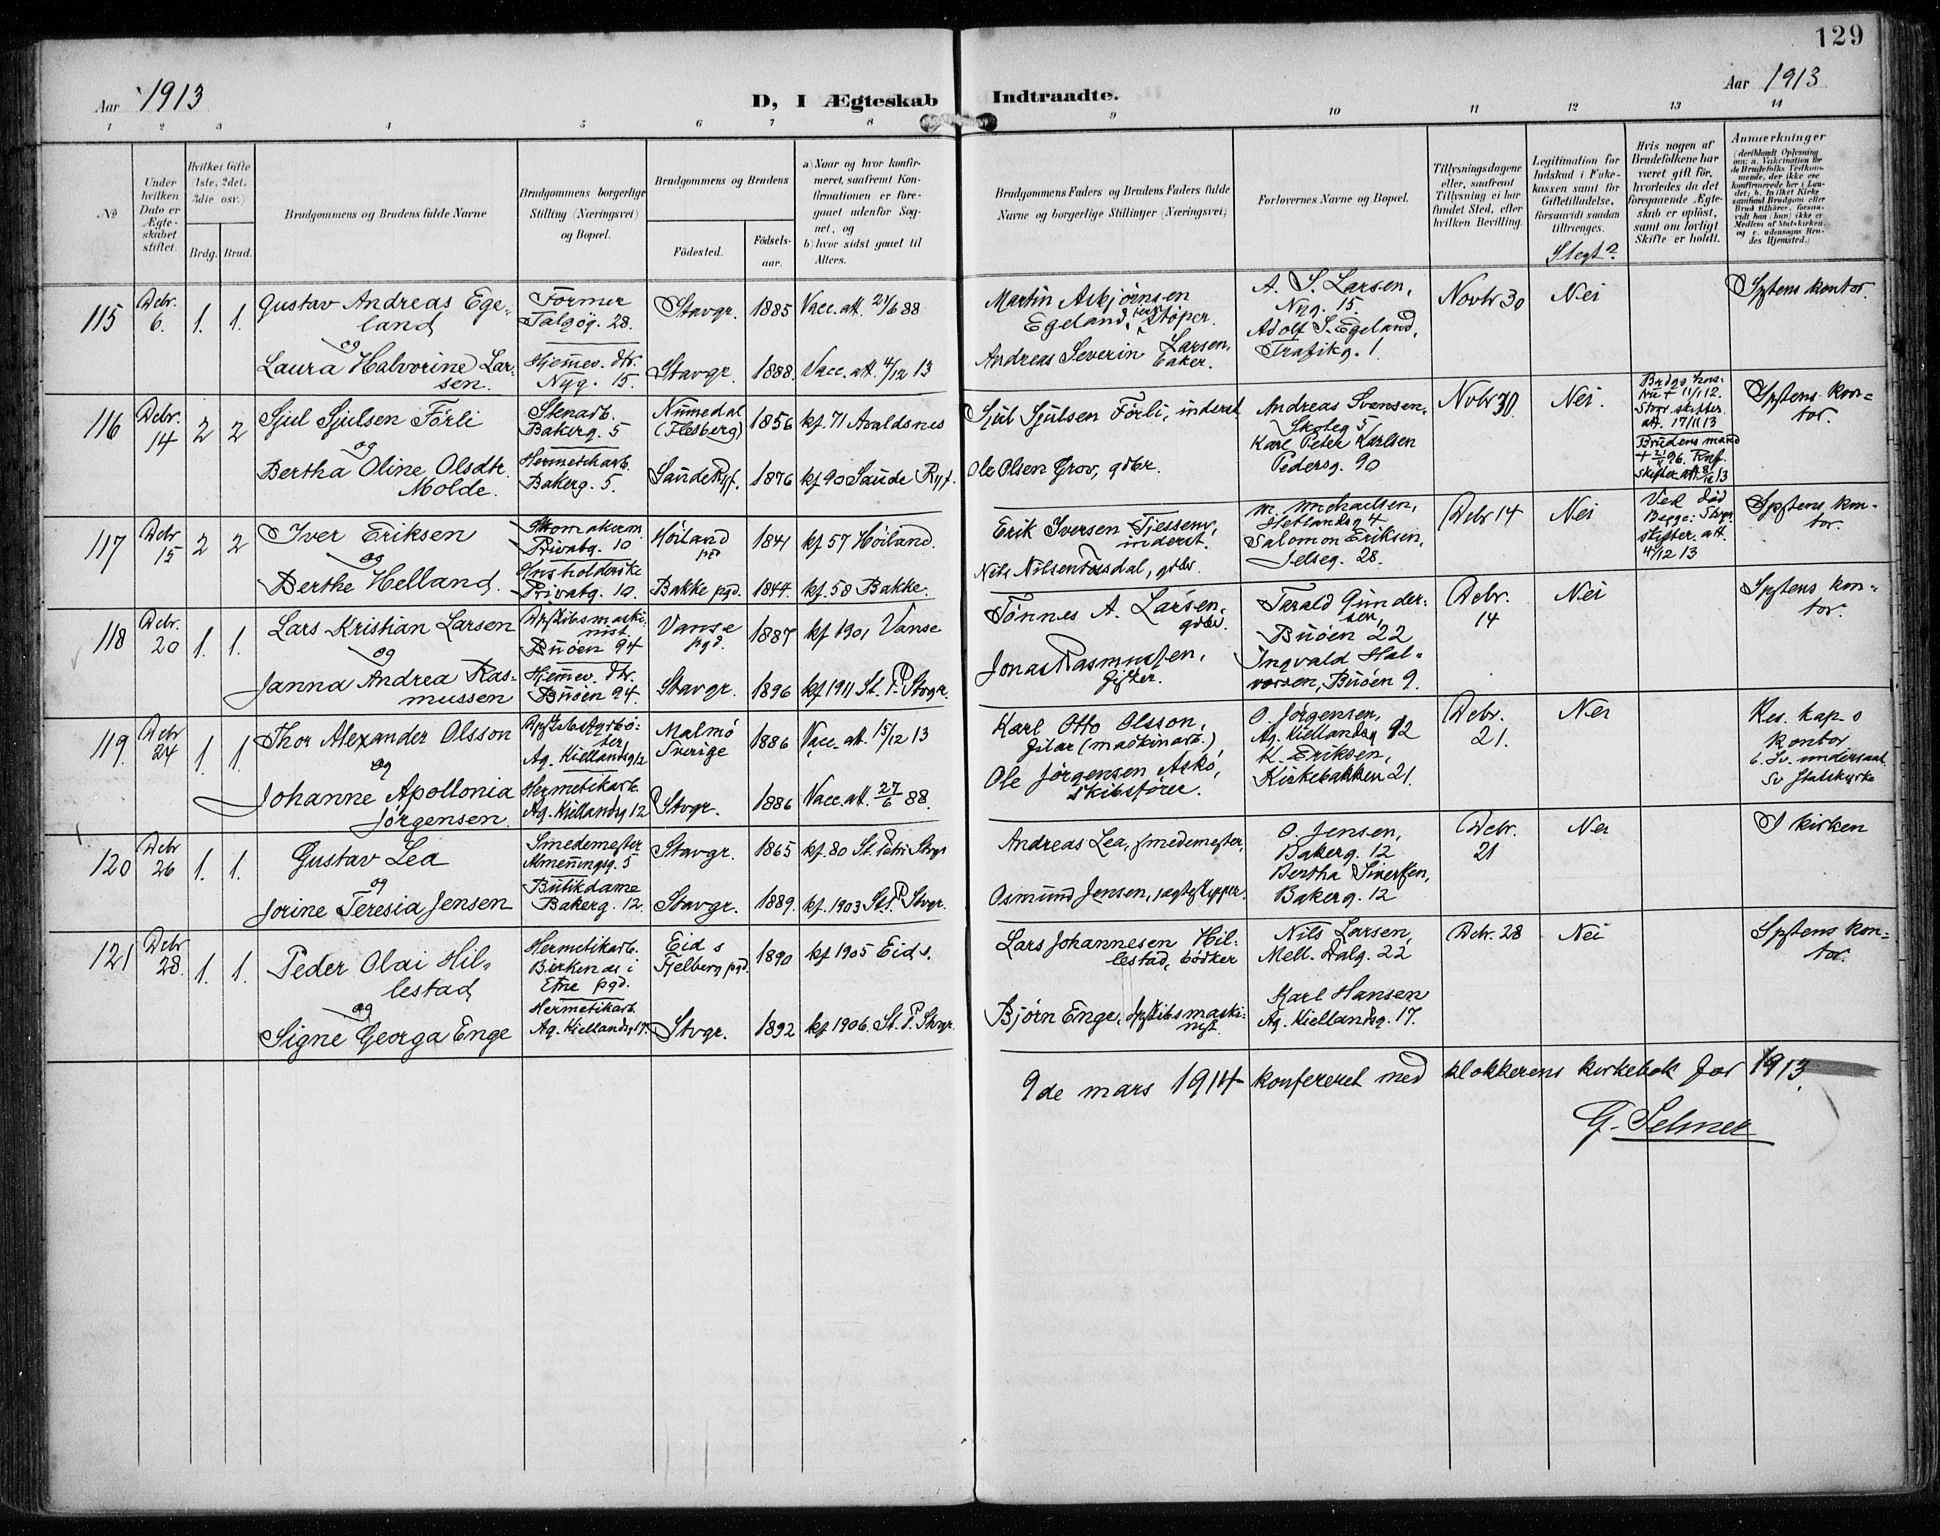 129
Aar 1913
D, I Ægteskab Indtraadte.
Aar 1913
1 2 3 4 5 6 7 8 9 10 11 12 13 14
No
Under hvilken Dato er Ægteskabet stiftet.
Hvilket Gifte (1ste, 2det, 3die osv.)
Brdg. Brud.
Brudgommens og Brudens fulde Navne
Brudgommens borgerlige Stilling (Næringsvei) og Bopæl.
Brudgommens og Brudens
Födested.
Födsels-aar.
a) Naar og hvor konfirmeret, saafremt Konfirmationen er foregaaet udenfor Sognet, og
b) hvor sidst gaaet til Alters.
Brudgommens Faders og Brudens Faders fulde Navne og borgerlige Stillinger (Næringsvei)
Forlovernes Navne og Bopæl.
Tillysningsdagene eller, saafremt Tillysning ei har fundet Sted, efter hvilken Bevilling.
Legitimation for Indskud i Enkekassen samt for Giftetilladelse, forsaavidt saadan tiltrænges.
Slegt?
Hvis nogen af Brudefolkene har været gift för, hvorledes da det foregaaende Ægteskab er oplöst, samt om lovligt Skifte er holdt.
Anmerkninger
115
Debr. 6.
1. 1.
Gustav Andreas Egeland
og
Laura Halvorine Larsen.
Former
Talgög. 28.
Hjemmev. dtr.
Nyg. 15.
Stavgr. 1885 Vacc. att. 21/6 88
Stavgr. 1888. Vacc. att. 4/12 13
Martin Askjörnsen
Egeland, Støper.
Andreas Severin Larsen,
A. S. Larsen,
Nyg. 15.
Adolf S. Egeland,
Trafikg. 1.
Novbr 30
Nei
Sptens kontor.
116
Debr. 14
2 2
Sjul Sjulsen Förli
og
Bertha Oline Olsdtr.
Molde.
Stenarb.
Bakerg. 5
Hermetikarb.
Bakerg. 5.
Numedal
(Flesberg)
1856 kf. 71 Avaldsnes
Saude Ryf. 1876 kf 90 Saude Ryf.
Sjul Sjulsen Förli, inderst
Ole Olsen Grov, gdbr.
Andreas Svensen,
Skoleg 5
Karl Peter Karlsen
Pedersg. 90
Novbr 30
Nei.
Brdgs hustru + 11/1 12.
Stvgr skifter.
att. 17/11 13
Brudens mand
Sptens kontor.
117
Debr 15
2 2
Iver Eriksen
og
Berthe Helland.
Skomakerm.
Privatg. 10
Husholderske
Privatg. 10.
Høiland
1841 kf 57 Høiland.
Bakke pgd. 1844. kf. 58 Bakke.
Erik Iversen Tjessem,
inderst.
Nils Nilsen Tösdal, gdbr.
M. Michaelsen,
Hetlandsg 4
Salomon Eriksen,
Jelseg. 28.
Debr 14
Nei
Ved död
Begge: Stvgr.
skifter. att.
4/12 13
Sptens kontor.
118
Debr. 20
1. 1.
Lars Kristian Larsen
og
Janna Andrea Rasmussen
Dpskibsmaskinist.
Buöen 94
Hjemmev. dtr.
Buöen 94.
Vanse pgd. 1887 kf 1901 Vanse
Stavgr. 1896 kf 1911 St. P. Stvgr.
Tönnes A. Larsen,
gdbr.
Jonas Rasmussen,
fisker.
Tarald Gundersen,
Buöen 22
Ingvald Halvorsen, Buöen 9.
Debr. 14
Nei
Sptens kontor.
119.
Debr 24
1. 1.
Thor Alexander Olsson
og
Johanne Apollonia
Jörgensen.
Dpskibsfyrböter,
Ag. Kiellandsg 12
Hermetikarb.
Ag. Kiellandsg 12
Malmö
Sverige
1886 Vacc. att. 15/12 13
Stvgr. 1886 Vacc. att. 27/6 88.
Karl Otto Olsson,
filar (maskinarb.)
Ole Jörgensen Askö,
skibsförer.
O. Jörgensen,
Ag. Kiellandsg 12
K. Eriksen,
Kirkebakken 21.
Debr. 21.
Nei
Res. kap.s
kontor
6. Sv. undersaat
Sv Statskyrka
120
Debr 26
1. 1.
Gustav Lea
og
Jorine Teresia Jensen
Smedemester
Almenningsg. 5
Butikdame
Bakerg. 12.
Stavgr. 1865 kf. 80 St. Petri Stvgr
Stavgr. 1889. kf. 1903 St. P. Stvgr.
Andreas Lea, smedemester,
Osmund Jensen, jagtskipper.
O. Jensen,
Bakerg. 12
Bertha Sivertsen,
Bakerg. 12
Debr. 21
Nei
I kirken
121
Debr 28.
1. 1.
Peder Olai Hillestad
og
Signe Georga Enge
Hermetikarb.
Birkenæs i
Etne pgd.
Hermetikarb.
Ag. Kiellandsg 17.
Eid s
Fjelberg pgd. 1890 kf 1905 Eid s.
Stvgr. 1892 kf 1906. St. P. Stvgr.
Lars Johannesen Hillestad, bödker
Björn Enge, dpskibsmaskinist.
Nils Larsen,
Mell. Dalg. 22
Karl Hansen
Ag. Kiellandsg. 17.
Debr. 28
Nei
Sptens kontor.
9de mars 1914 konfereret med klokkerens kirkebok for 1913.
G. Selmer